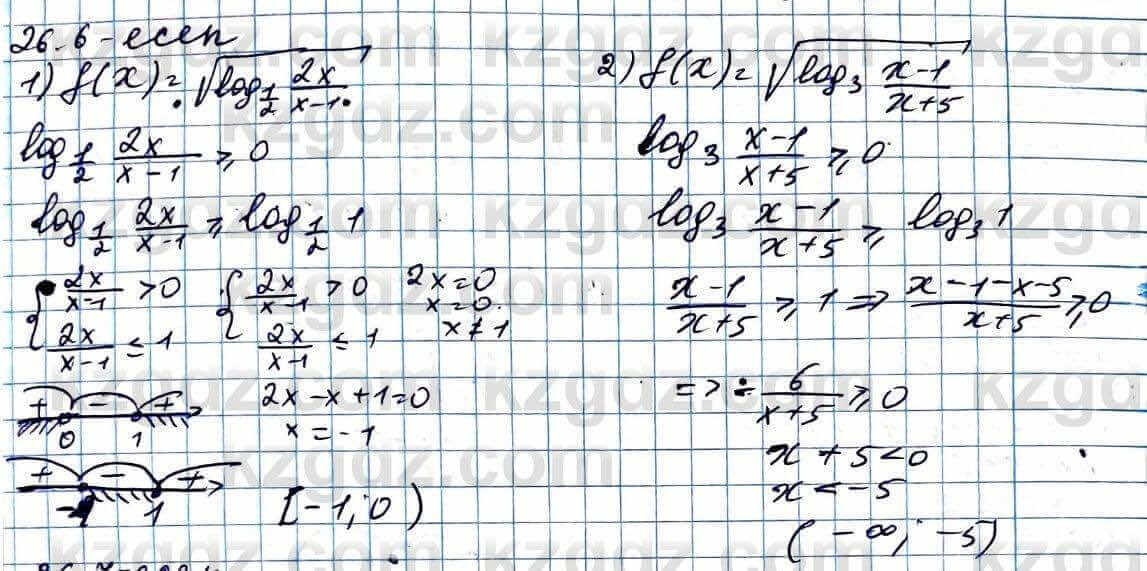 26.6-есеп
1) f(x) = √(log_{1/2} 2x/(x-1))
log_{1/2} 2x/(x-1) ≥ 0
log_{1/2} 2x/(x-1) ≥ log_{1/2} 1
{ 2x/(x-1) > 0 { 2x/(x-1) > 0 2x=0
x=0
{ 2x/(x-1) ≤ 1 { 2x/(x-1) ≤ 1 x≠1
+ - +
0 1
2x-x+1=0
x=-1
+ - +
-1 1
[-1; 0)
2) f(x) = √(log_3 (x-1)/(x+5))
log_3 (x-1)/(x+5) ≥ 0
log_3 (x-1)/(x+5) ≥ log_3 1
(x-1)/(x+5) ≥ 1 => (x-1-x-5)/(x+5) ≥ 0
=> - 6/(x+5) ≥ 0
x+5<0
x<-5
(-∞; -5)
kzgdz.com